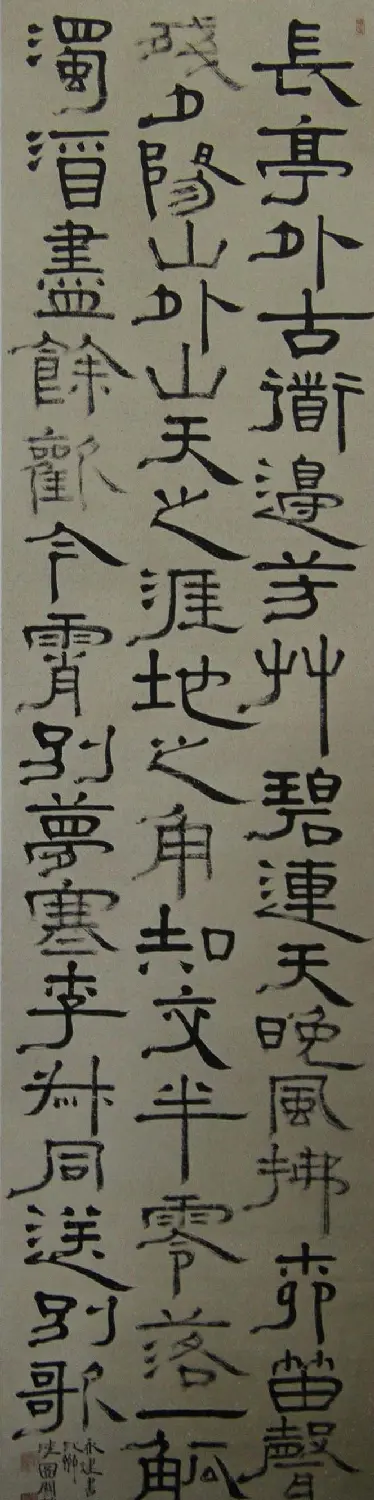 長亭外古衜邊芳艸碧連天晚風拂桺笛聲
殘夕陽山外山天之涯地之角知交半零落一觚
濁酒盡餘歡今霄別夢寒李叔同送別歌